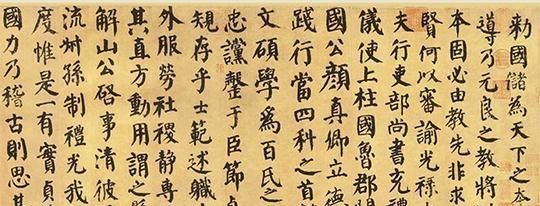 勑國儲為天下之本
導乃元良之教將
本固必由教先非求
賢何以審諭光祿
夫行吏部尚書充禮
儀使上柱國魯郡開
國公顏真卿立德
踐行當四科之首
文碩學為百氏之
忠讜罄于臣節貞
規存乎士範述職
外服勞社稷靜專
其直方動用謂之
解山公啓事清彼
流叔孫制禮光我
度惟是一有實貞
國力乃稽古則思其